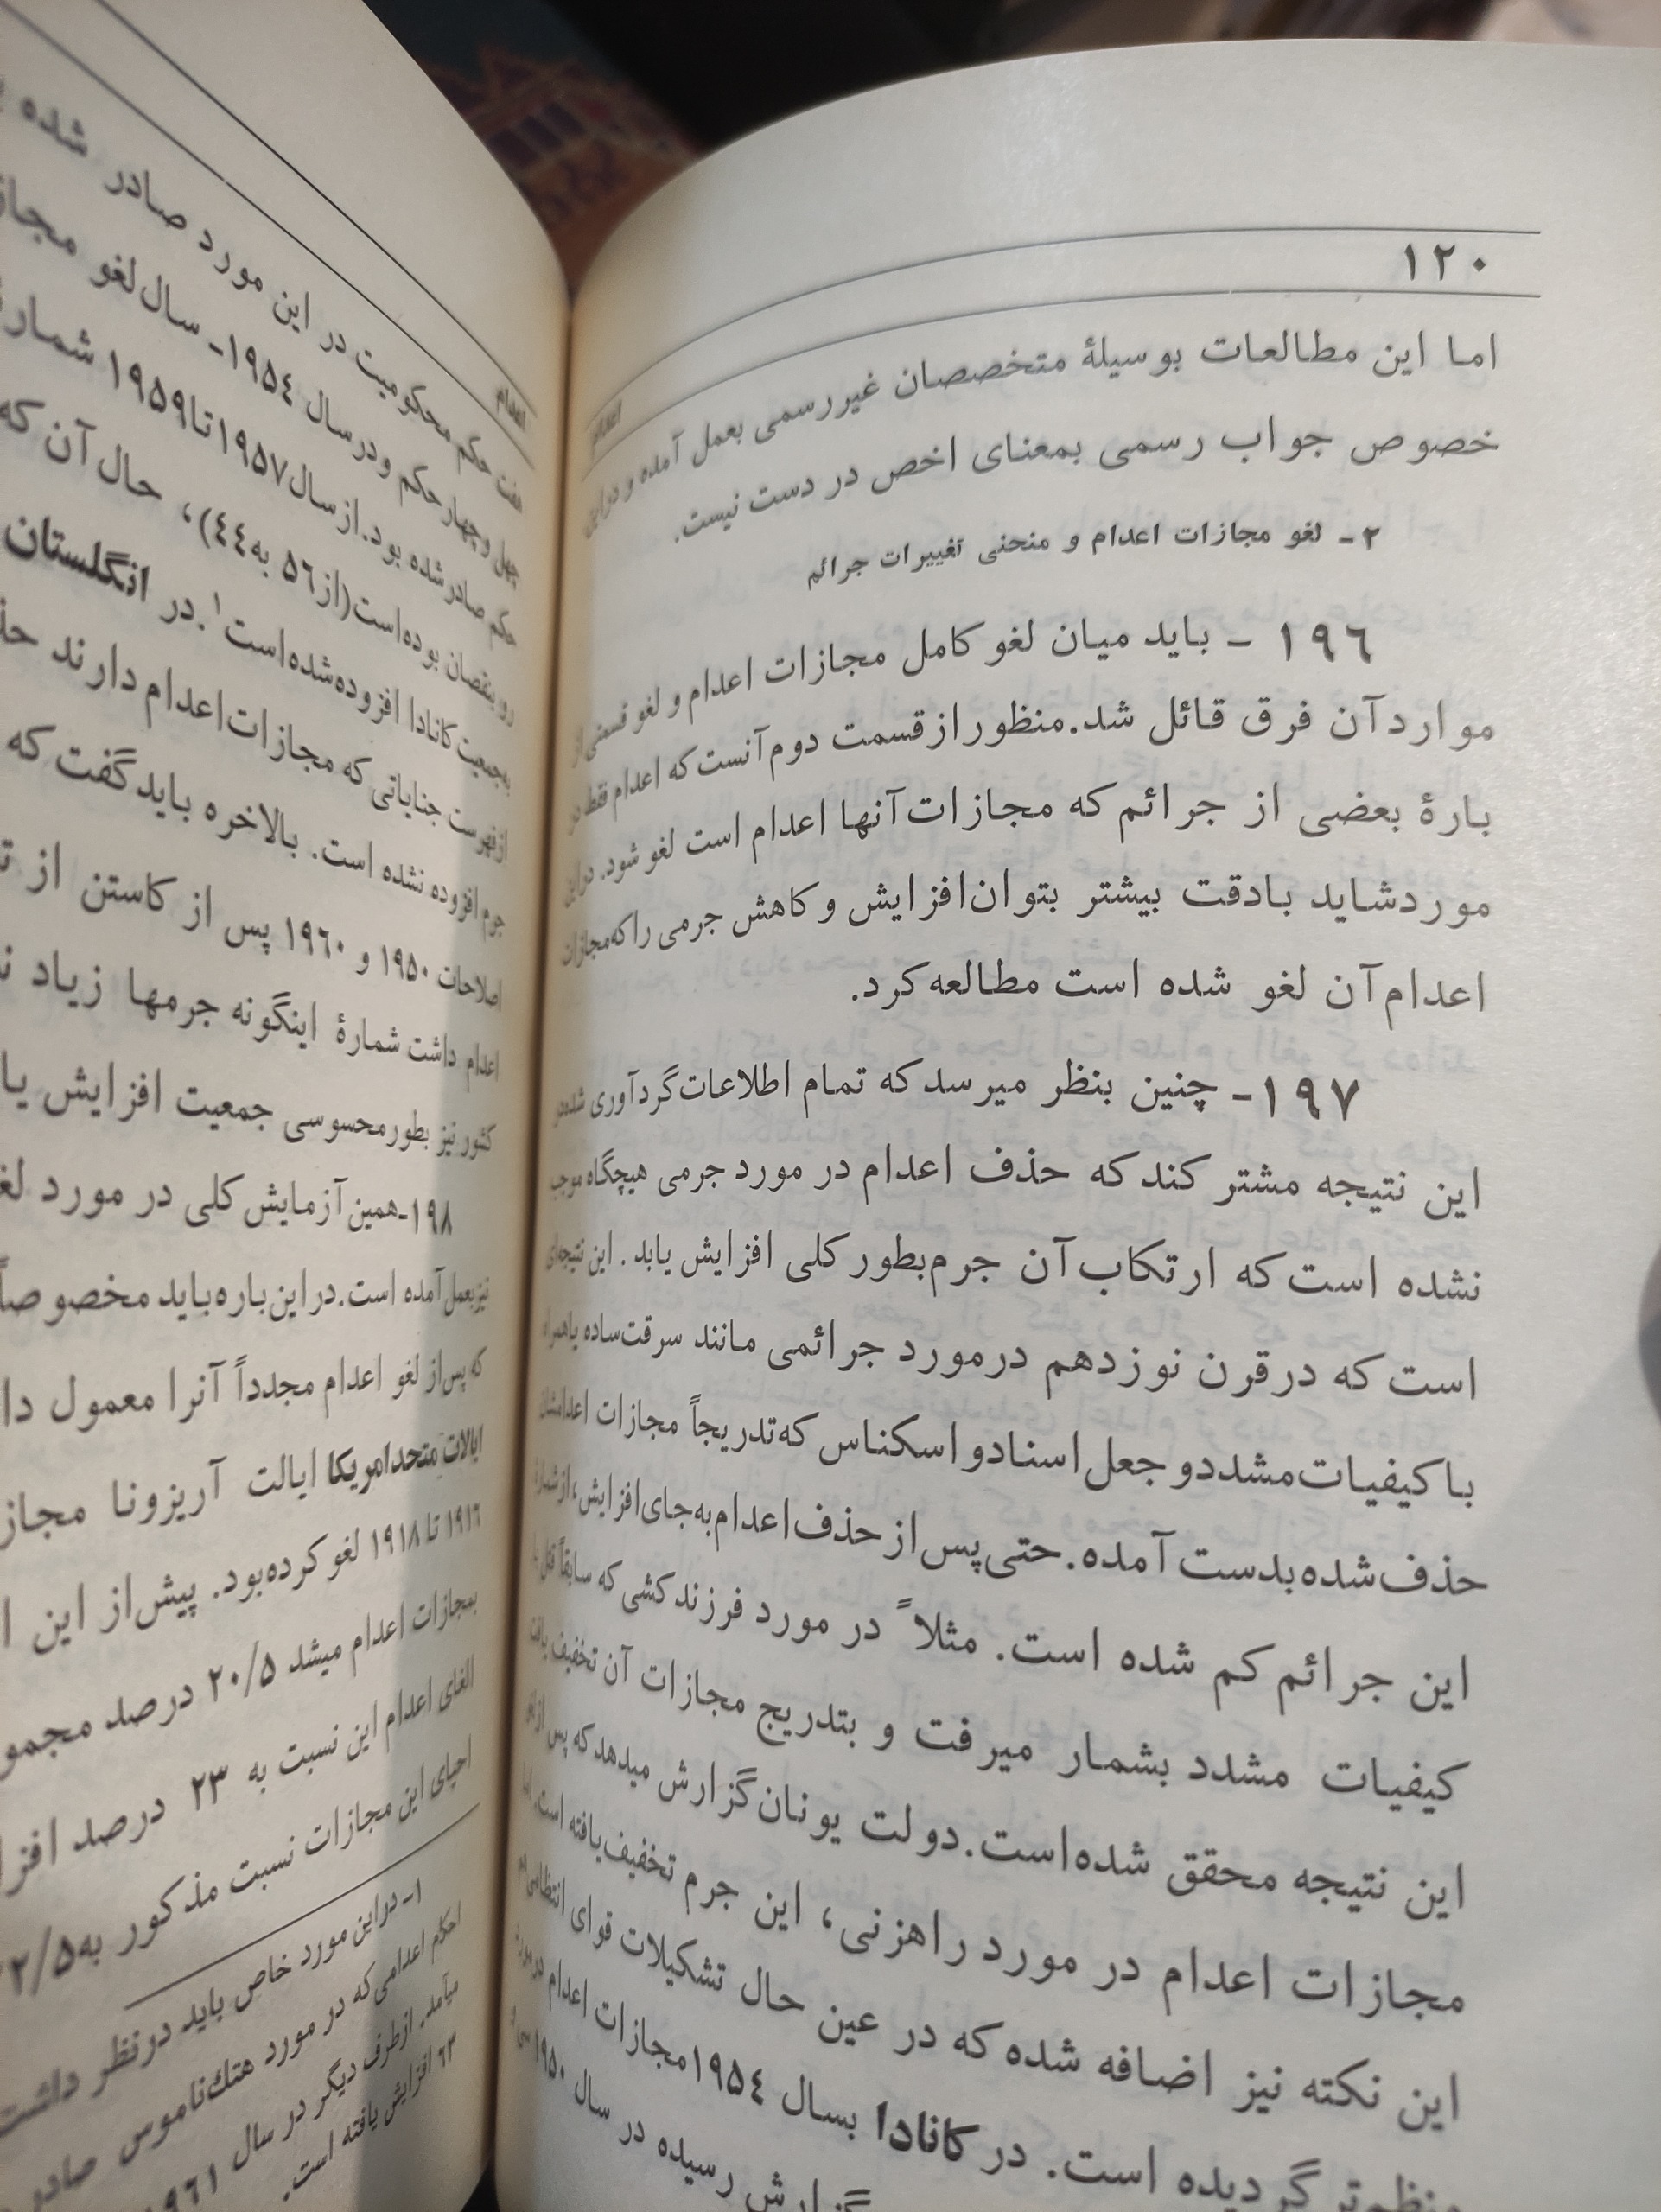 ۱۲۰
اعدام
اما این مطالعات بوسیلهٔ متخصصان غیررسمی بعمل آمده و دراین
خصوص جواب رسمی بمعنای اخص در دست نیست.
۲- لغو مجازات اعدام و منحنی تغییرات جرائم
۱۹٦ - باید میان لغو کامل مجازات اعدام و لغو قسمتی از
موارد آن فرق قائل شد. منظور از قسمت دوم آنست که اعدام فقط در
بارهٔ بعضی از جرائم که مجازات آنها اعدام است لغو شود. دراین
مورد شاید بادقت بیشتر بتوان افزایش و کاهش جرمی را که مجازات
اعدام آن لغو شده است مطالعه کرد.
۱۹۷- چنین بنظر میرسد که تمام اطلاعات گردآوری شده در
این نتیجه مشتر کند که حذف اعدام در مورد جرمی هیچگاه موجب
نشده است که ارتکاب آن جرم بطور کلی افزایش یابد. این نتیجه‌ای
است که در قرن نوزدهم در مورد جرائمی مانند سرقت ساده یا همراه
با کیفیات مشدد و جعل اسناد و اسکناس که تدریجاً مجازات اعدامشان
حذف شده بدست آمده. حتی پس از حذف اعدام به جای افزایش، از شمارهٔ
این جرائم کم شده است. مثلاً در مورد فرزند کشی که سابقاً قتل با
کیفیات مشدد بشمار میرفت و بتدریج مجازات آن تخفیف یافت
این نتیجه محقق شده است. دولت یونان گزارش میدهد که پس از لغو
مجازات اعدام در مورد راهزنی، این جرم تخفیف یافته است. اما
این نکته نیز اضافه شده که در عین حال تشکیلات قوای انتظامی هم
منظم‌تر گردیده است. در کانادا بسال ۱۹۵٤ مجازات اعدام در مورد
گزارش رسیده در سال ۱۹۵۰ سی و
اعدام
هفت حکم محکومیت در این مورد صادر شده
چهل و چهار حکم و در سال ۱۹۵٤- سال لغو
حکم صادر شده بود. از سال ۱۹۵۷ تا ۱۹۵۹ شماره
رو بنقصان بوده است (از ۵٦ به ٤٤)، حال آن که
به جمعیت کانادا افزوده شده است۱. در انگلستان
از فهرست جنایاتی که مجازات اعدام دارند
جرم افزوده نشده است. بالاخره باید گفت که
اصلاحات ۱۹۵۰ و ۱۹٦۰ پس از کاستن از
اعدام داشت شمارهٔ اینگونه جرمها زیاد
کشور نیز بطور محسوسی جمعیت افزایش
۱۹۸-همین آزمایش کلی در مورد
نیز بعمل آمده است. در این باره باید مخصوصاً
که پس از لغو اعدام مجدداً آنرا معمول
ایالات متحد امریکا ایالت آریزونا
۱۹۱٦ تا ۱۹۱۸ لغو کرده بود. پیش از این
بمجازات اعدام میشد ۲۰/۵ درصد
الغای اعدام این نسبت به ۲۳ درصد
احیای این مجازات نسبت مذکور به
۱- در این مورد خاص باید در نظر داشت
احکام اعدامی که در مورد هتك ناموس صادر
میآمد. از طرف دیگر در سال ۱۹٦۱
٦۲ افزایش یافته است.